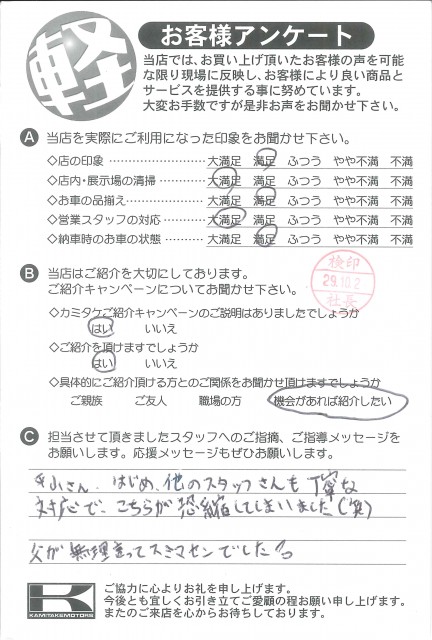 軽
お客様アンケート
当店では、お買い上げ頂いたお客様の声を可能
な限り現場に反映し、お客様により良い商品と
サービスを提供する事に努めています。
大変お手数ですが是非お声をお聞かせ下さい。
A 当店を実際にご利用になった印象をお聞かせ下さい。
◇店の印象 …………………… 大満足 満足 ふつう やや不満 不満
◇店内・展示場の清掃 ………… 大満足 満足 ふつう やや不満 不満
◇お車の品揃え ………………… 大満足 満足 ふつう やや不満 不満
◇営業スタッフの対応 ………… 大満足 満足 ふつう やや不満 不満
◇納車時のお車の状態 ………… 大満足 満足 ふつう やや不満 不満
B 当店はご紹介を大切にしております。
ご紹介キャンペーンについてお聞かせ下さい。
検印
29.10.2
社長
◇カミタケご紹介キャンペーンのご説明はありましたでしょうか
はい いいえ
◇ご紹介を頂けますでしょうか
はい いいえ
◇具体的にご紹介頂ける方とのご関係をお聞かせ頂けますでしょうか
ご親族 ご友人 職場の方 機会があれば紹介したい
C 担当させて頂きましたスタッフへのご指摘、ご指導メッセージを
お願いします。応援メッセージもぜひお願いします。
小さん、はじめ、他のスタッフさんも丁寧な
対応で、こちらが恐縮してしまいました(笑)
父が無理言ってスミマセンでした
K
KAMITAKEMOTORS
ご協力に心よりお礼を申し上げます。
今後とも宜しくお引き立てご愛顧の程お願い申し上げます。
またのご来店を心からお待ちしております。